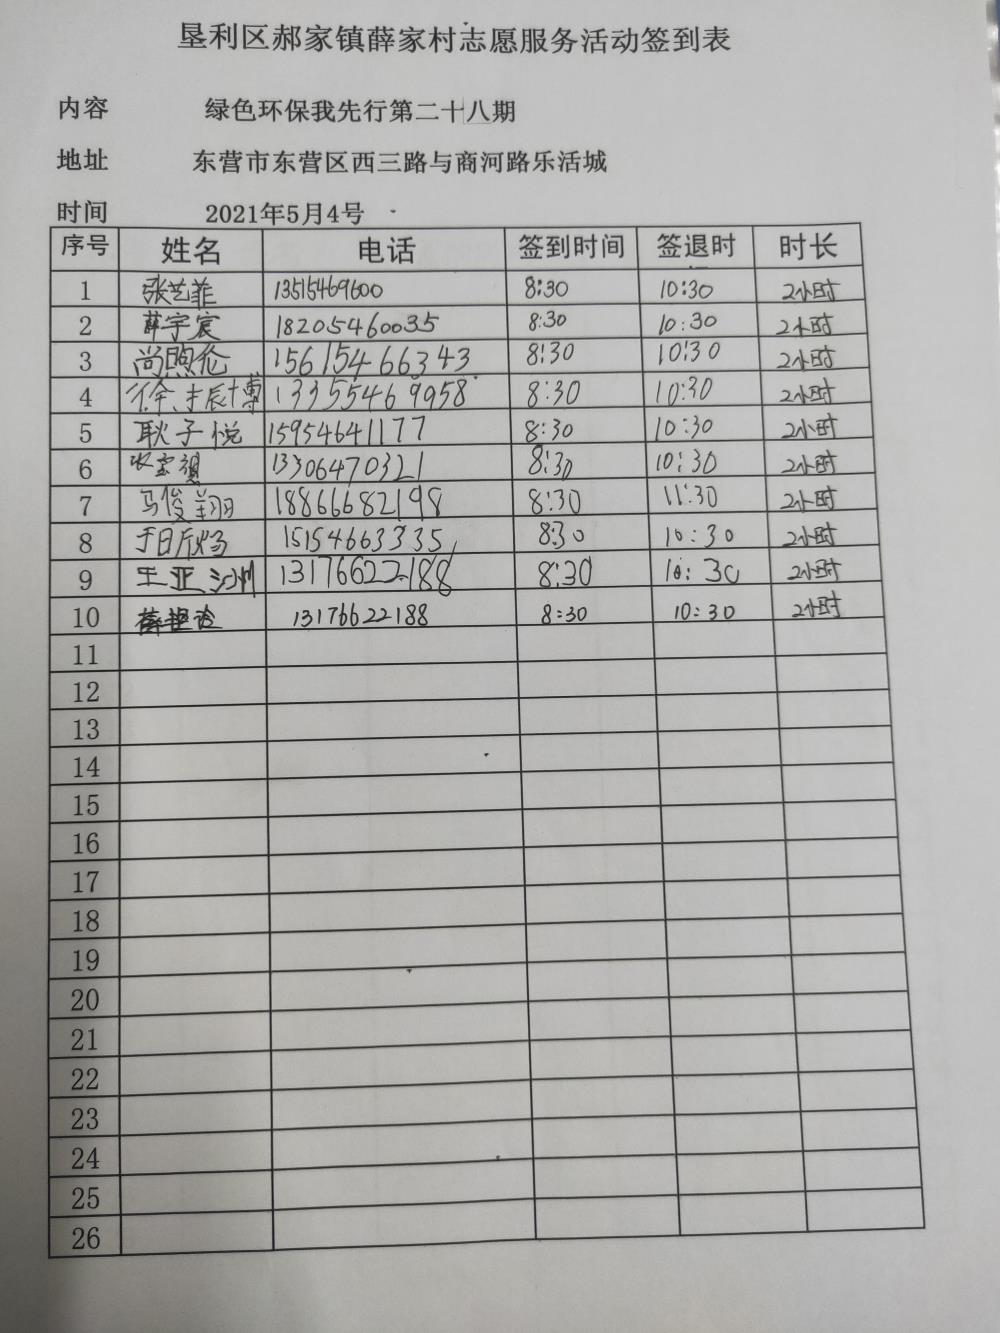 垦利区郝家镇薛家村志愿服务活动签到表
内容 绿色环保我先行第二十八期
地址 东营市东营区西三路与商河路乐活城
时间 2021年5月4号
序号 姓名 电话 签到时间 签退时 时长
1 张艺菲 13515469600 8:30 10:30 2小时
2 薛宇宸 18205460035 8:30 10:30 2小时
3 尚煦伦 15615466343 8:30 10:30 2小时
4 徐 博 13355469958 8:30 10:30 2小时
5 耿子悦 15954641177 8:30 10:30 2小时
6 13306470321 8:30 10:30 2小时
7 马俊翔 18866682198 8:30 11:30 2小时
8 15154663335 8:30 10:30 2小时
9 王亚 13176622188 8:30 10:30 2小时
10 13176622188 8:30 10:30 2小时
11
12
13
14
15
16
17
18
19
20
21
22
23
24
25
26